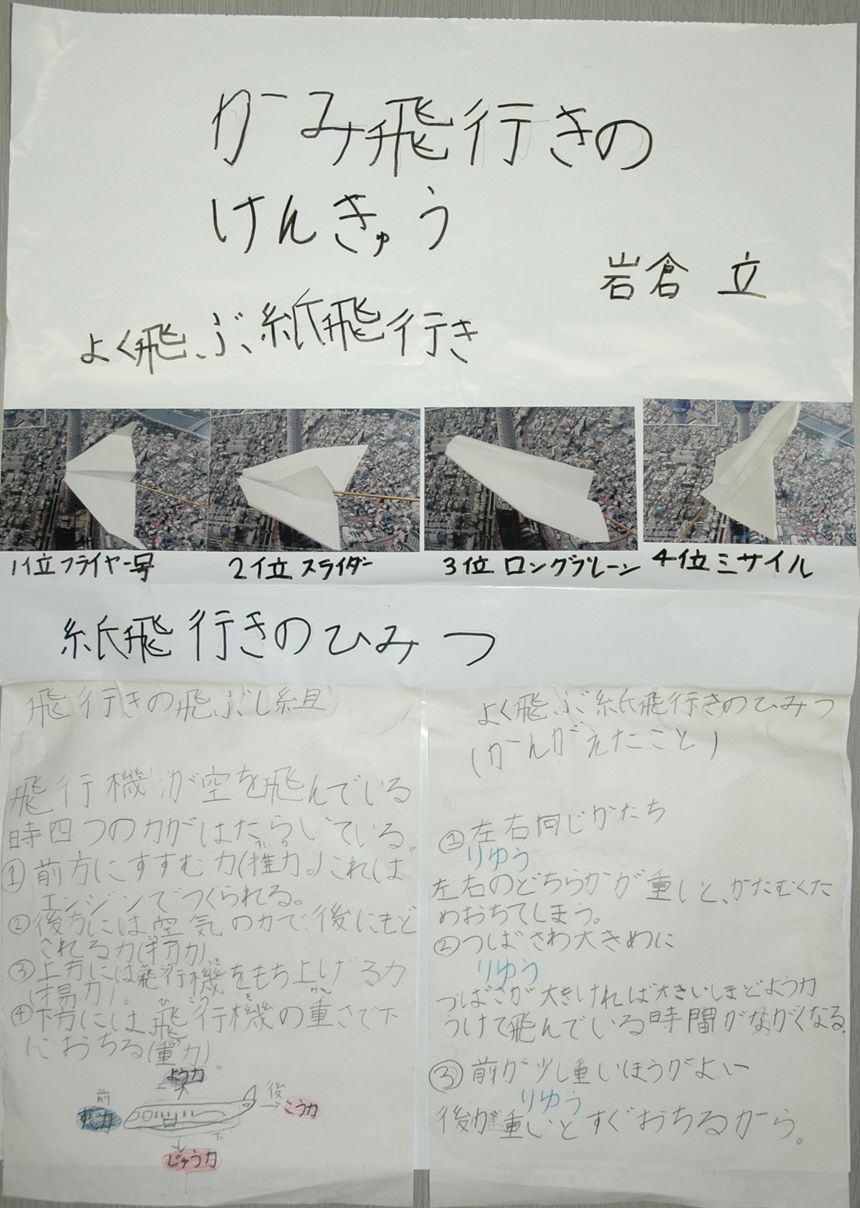 かみ飛行きの
けんきゅう
岩倉 立
よく飛ぶ紙飛行き
1位フライヤー号
2位 スライダー
3位 ロングプレーン
4位ミサイル
紙飛行きのひみつ
飛行きの飛ぶし組
飛行機が空を飛んでいる
時四つの力がはたらいている。
①前方にすすむ力(推力。)これは
エンジンでつくられる。
②後方には空気の力で後にもど
される力(抗力)
③上方には飛行機をもち上げる力
(揚力)。
④下方には飛行機の重さで下
におちる(重力)。
よう力
前
後
すい力
こう力
下
じゅう力
よく飛ぶ紙飛行きのひみつ
(かんがえたこと)
①左右同じかたち
りゆう
左右のどちらかが重いと、かたむくた
めおちてしまう。
②つばさわ大きめに
りゆう
つばさが大きければ大きいほどよう力
うけて飛んでいる時間がながくなる
③前が少し重いほうがよい
りゆう
後が重いとすぐおちるから。